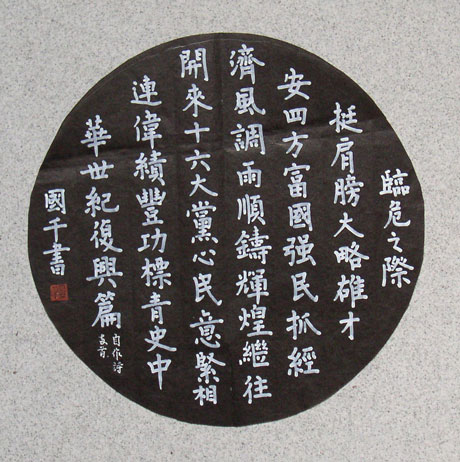 臨危之際
挺肩膀大略雄才
安四方富國强民抓經
濟風調雨順鑄輝煌繼往
開來十六大黨心民意緊相
連偉績豐功標青史中
華世紀復興篇
自作詩
首
國千書